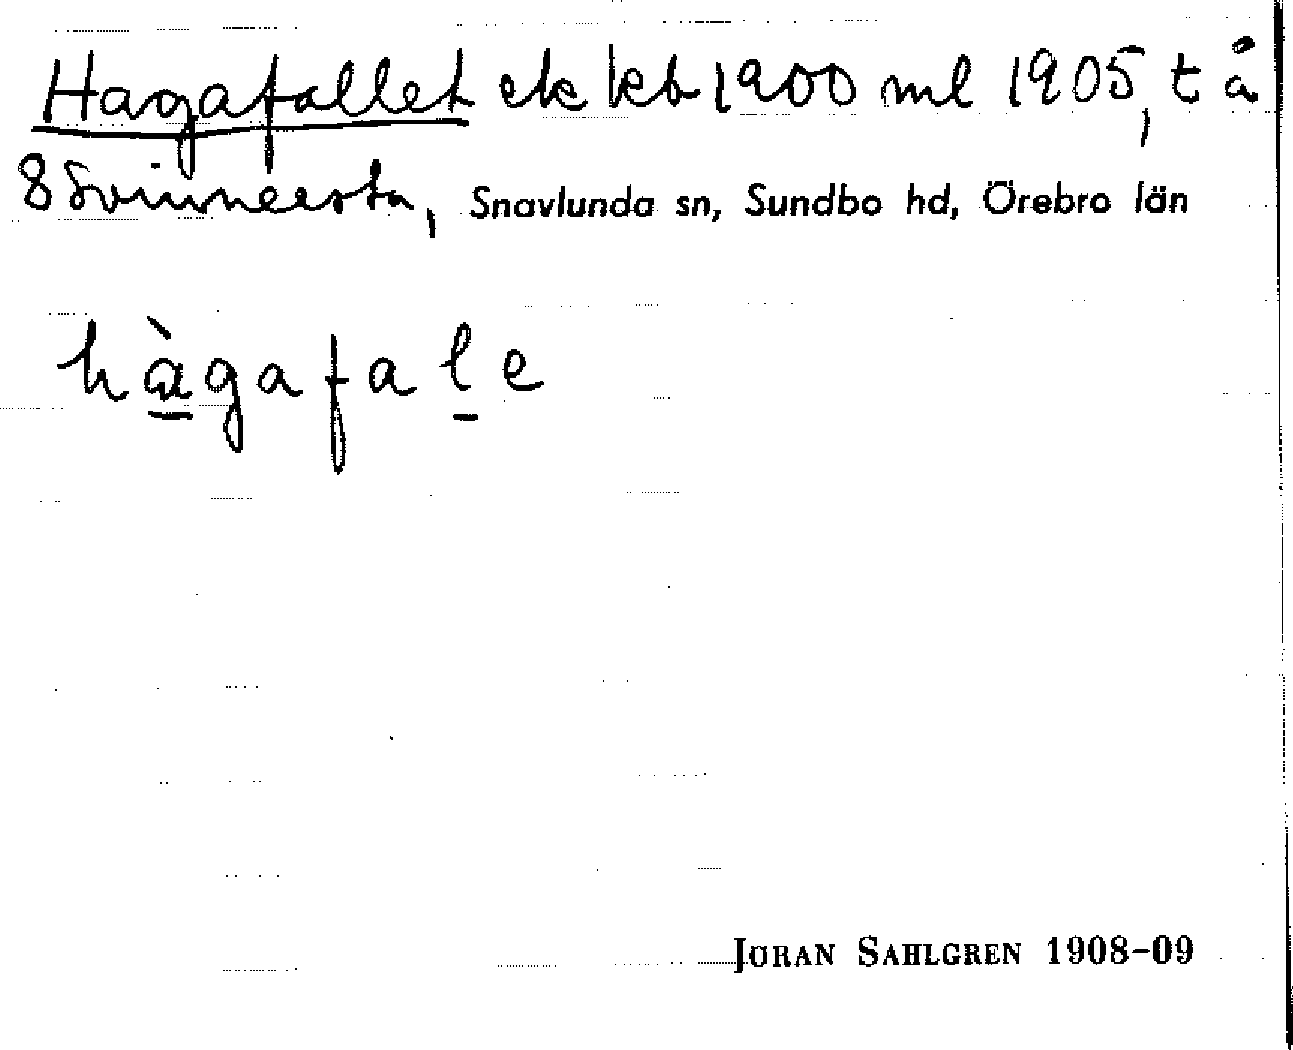 Hagafallet ek kb 1900 ml 1905, t å
8 Svinnersta, Snavlunda sn, Sundbo hd, Örebro län
hàgafale
JÖRAN SAHLGREN 1908–09